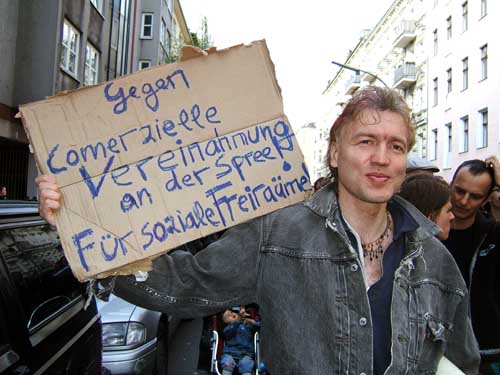 Gegen
Comerzielle
Vereinahnung
an der Spree!
Für soziale Freiräume!